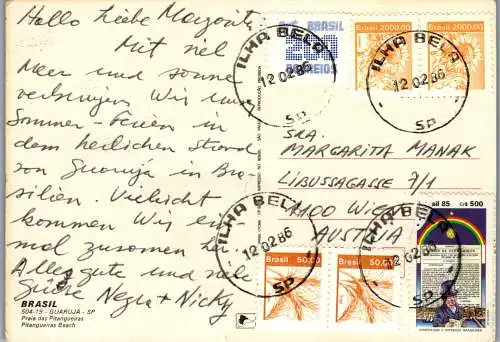 Hallo liebe Margarit
Mit viel
Meer und sonne
verbringen Wir uns
Sommer - Ferien in
dem herlichen Strand
von Guaruja in Bra-
silien. Vieleicht
kommen Wir ein-
mal zusamen her
Alles gute und viele
Grüße Negra + Nicky
BRASIL
504-19 - GUARUJÁ - SP
Praia das Pitangueiras
Pitangueiras Beach
BRASIL
CORREIOS
Brasil 2000,00
Brasil 2000,00
ILHA BELA
12 02 86
SP
ILHA BELA
12 02 86
SP
SRA.
MARGARITA MANAK
LIBUSSAGASSE 7/1
1100 WIEN
AUSTRIA
ILHA BELA
12 02 86
ILHA BELA
12 02 86
SP
Brasil 50,00
Brasil 50,00
sil 85 Cr$ 500